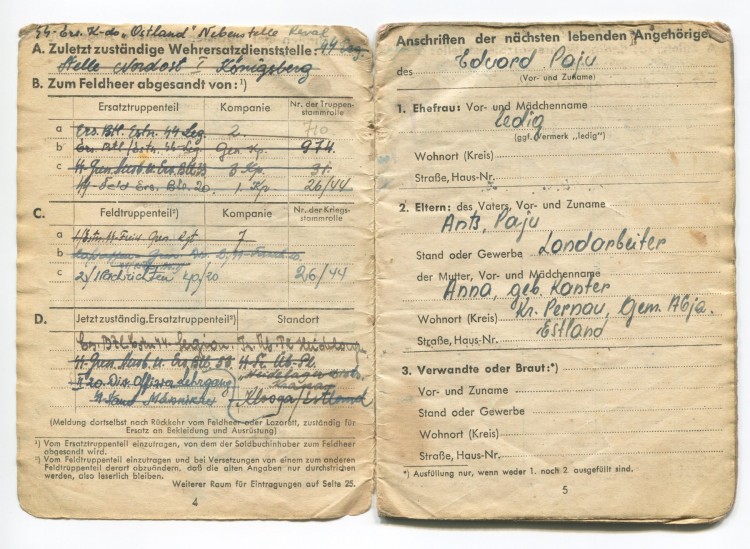 SS-Ers. K-do „Ostland" Nebenstelle Reval
A. Zuletzt zuständige Wehrersatzdienststelle: SS Erg.
Stelle Nordost I Königsberg
B. Zum Feldheer abgesandt von:¹)
Ersatztruppenteil Kompanie Nr. der Truppen-
stammrolle
a Ers. Btl. Estn. SS Leg. 2. 710
b Ers. Btl/Estn. SS-Leg. Gen. Kp. 974.
c SS-Gren. Ausb. u. Ers. Btl. 33 3 Kp. 31.
Feld Ers. Btl. 20. 1. Kp 26/44
C. Feldtruppenteil²) Kompanie Nr. der Kriegs-
stammrolle
a Estn. SS-Freiw. Gren. Rgt 7
b
c 2/Nachrichten 20 26/44
D. Jetzt zuständig. Ersatztruppenteil²) Standort
Ers. Btl. Estn. SS-Legion. Tr. Üb. Pl. Heidelager
SS-Gren. Ausb. u. Ers. Btl. 33. SS-Tr. Üb.-Pl.
Heidelager
20. Div. Lehrgang
Männiku Klooga/Estland
(Meldung dortselbst nach Rückkehr vom Feldheer oder Lazarett, zuständig für
Ersatz an Bekleidung und Ausrüstung)
¹) Vom Ersatztruppenteil einzutragen, von dem der Soldbuchinhaber zum Feldheer
abgesandt wird.
²) Vom Feldtruppenteil einzutragen und bei Versetzungen von einem zum anderen
Feldtruppenteil derart abzuändern, daß die alten Angaben nur durchstrichen
werden, also leserlich bleiben.
Weiterer Raum für Eintragungen auf Seite 25.
4
Anschriften der nächsten lebenden Angehörigen
des Eduard Paju
(Vor- und Zuname)
1. Ehefrau: Vor- und Mädchenname
ledig
(ggf. Vermerk „ledig")
Wohnort (Kreis)
Straße, Haus-Nr.
2. Eltern: des Vaters, Vor- und Zuname
Ants, Paju
Stand oder Gewerbe Landarbeiter
der Mutter, Vor- und Mädchenname
Anna, geb. Kanter
Wohnort (Kreis) Kr. Pernau, Gem. Abja.
Straße, Haus-Nr. Estland
3. Verwandte oder Braut:*)
Vor- und Zuname
Stand oder Gewerbe
Wohnort (Kreis)
Straße, Haus-Nr.
*) Ausfüllung nur, wenn weder 1. noch 2. ausgefüllt sind.
5